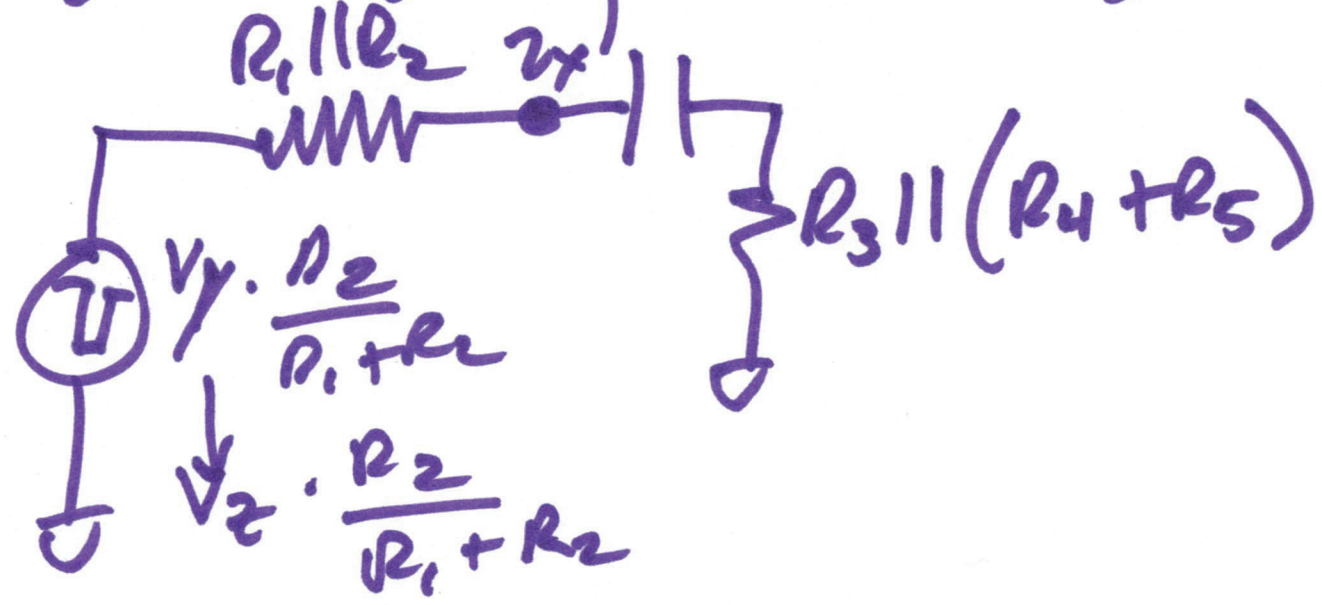 R₁||R₂ v_x
R₃||(R₄ + R₅)
V_y · R₂ / (R₁ + R₂)
↓
V_z · R₂ / (R₁ + R₂)